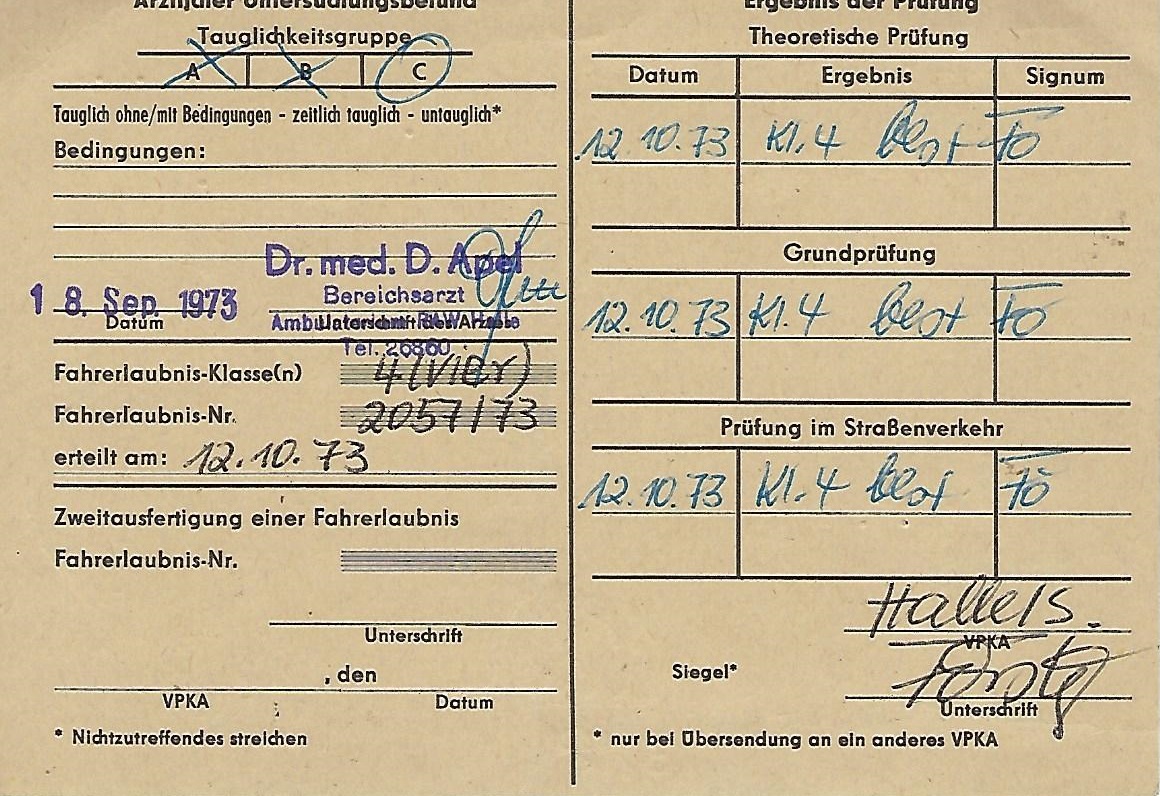 Ärztlicher Untersuchungsbefund
Tauglichkeitsgruppe
A B C
Tauglich ohne/mit Bedingungen - zeitlich tauglich - untauglich*
Bedingungen:
Dr. med. D. Apel
Bereichsarzt
18. Sep. 1973
Datum
Unterschrift des Arztes
Tel. 26860
Fahrerlaubnis-Klasse(n) 4 (Vier)
Fahrerlaubnis-Nr. 2057/73
erteilt am: 12.10.73
Zweitausfertigung einer Fahrerlaubnis
Fahrerlaubnis-Nr.
Unterschrift
, den
VPKA Datum
* Nichtzutreffendes streichen
Ergebnis der Prüfung
Theoretische Prüfung
Datum Ergebnis Signum
12.10.73 Kl.4 best Fö
Grundprüfung
12.10.73 Kl.4 best Fö
Prüfung im Straßenverkehr
12.10.73 Kl.4 best Fö
Halle/S.
VPKA
Siegel*
Unterschrift
* nur bei Übersendung an ein anderes VPKA